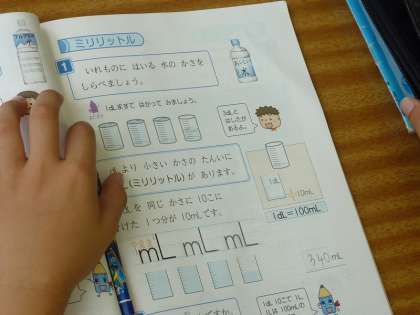 ミリリットル
1
いれものに はいる 水の かさを
しらべましょう。
1dLますで はかって みましょう。
3dLと
はしたが
あるよ。
より 小さい かさの たんいに
(ミリリットル)が あります。
1dL
10mL
を 同じ かさに 10こに
1つ分が 10mLです。
1dL=100mL
mL mL mL
340mL
1dL 10こで 1L、
1Lは 100mLの